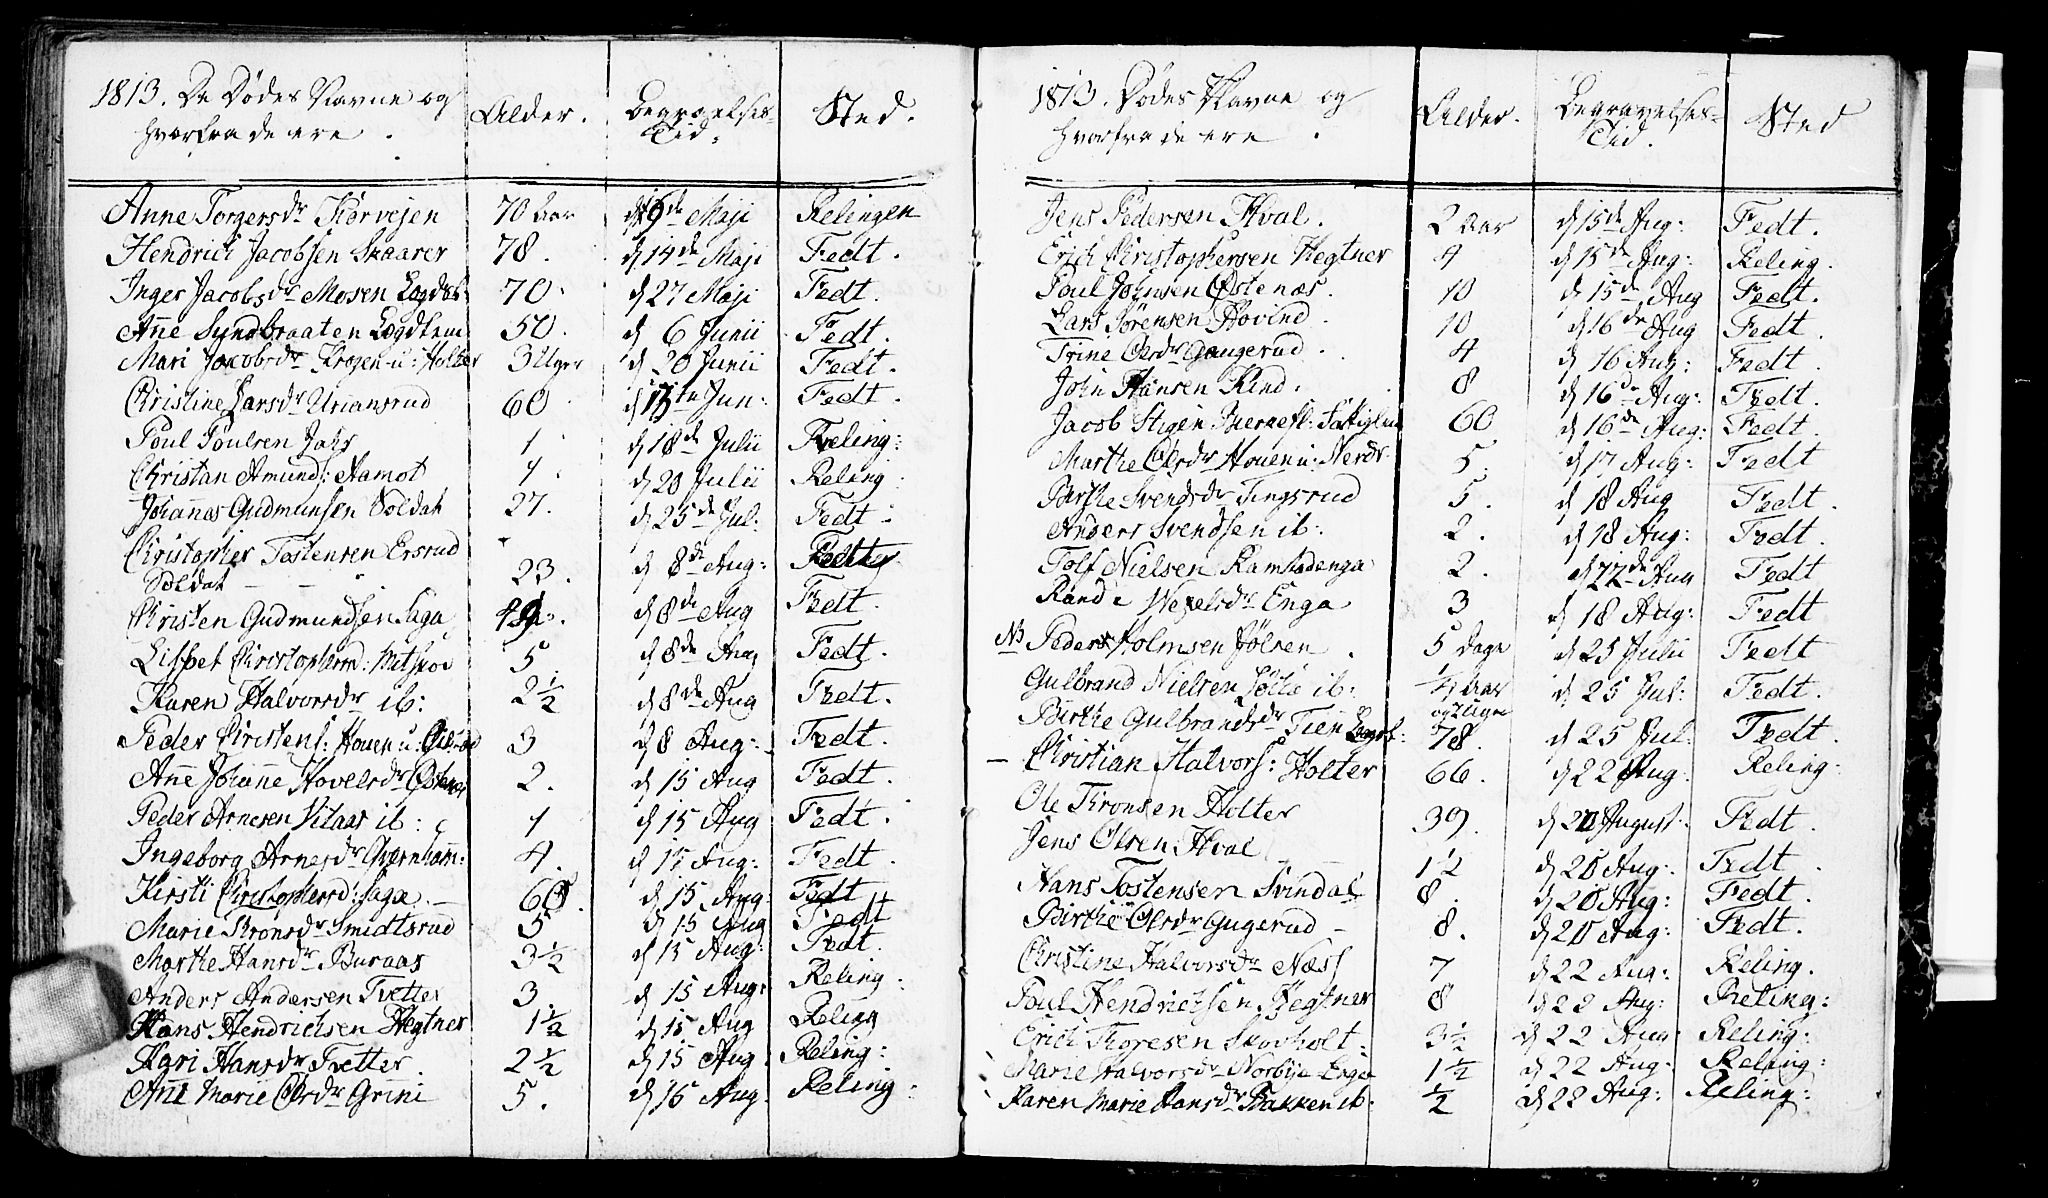 1813. De Dødes Navne og
hvorfra de ere.
Alder.
Begravelses-
Tid.
Sted.
Anne Torgersdr Kørvejen 70 Aar d 9de Maji Relingen
Hendrich Jacobsen Skaarer 78. d 14de Maji Fedt.
Inger Jacobsdr Mosen Lægdsl: 70. d 27 Maji Fedt.
Añe Lundbraaten Lægdlem 50. d 6 Junii Fedt.
Mari Jacobsdr Krogen u: Holter 3 Uger d 20 Junii Fedt.
Christine Larsdr Uriansrud 60. d Jun: Fedt.
Poul Poulsen Jahr 1 d 18de Julii Reling:
Christan Amunds: Aamot d 20 Julii Reling:
Johanes Gudmunsen Soldat 27. d 25de Jul: Fedt.
Christopher Tostensen Ersrud
Soldat 23. d 8de Aug: Fedt
Christen Gudmundsen Saga d 8de Aug Fedt.
Lisbet Christophersd: Metskov 5. d 8de Aug Fedt.
Karen Halvorsdr ib: 2½ d 8de Aug Fedt.
Peder Christens: Houen u: 3 d 8 Aug: Fedt.
Añe Johanne Hovelsdr Østenæs 2. d 15 Aug Fedt.
Peder Arnesen Vilaas ib: d 15 Aug Fedt.
Ingeborg Arnesdr Qvernham: 4. d 15 Aug: Fedt.
Kirsti Christophersd: Saga 60. d 15 Aug: Fedt
Marie Kronsdr Smidtsrud 5 d 15 Aug Fedt
Marthe Hansdr Buraas 3½ d 15 Aug: Fedt.
Anders Andersen Tvetter 3. d 15 Aug: Reling:
Hans Hendrichsen Hegtner 1½ d 15 Aug Reling
Kari Hansdr Tvetter. 2½ d 15 Aug. Reling:
Añe Marie Olsdr Grini 5. d 16 Aug. Reling:
1813. Dødes Navne og
hvorfra de ere.
Alder.
Begravelses-
Tid.
Sted
Jens Pedersen Hval. 2 Aar d 15de Aug: Fedt.
Erich Christophersen Hegtner 4 d 15de Aug: Reling.
Poul Johnsen Østenæs. 10 d 15de Aug Fedt.
Lars Sørensen Hovind. 10 d 16de Aug Fedt.
Trine Olsdr Gaugerud. 4 d 16 Aug: Fedt.
John Hansen Rind. 8 d 16de Aug: Fedt.
Jacob Stigen Bierkefl: Fattiglem 60 d 16de Aug: Fedt.
Marthe Olsdr Houen u: Nerdr 5. d 17 Aug: Fedt
Birthe Svendsdr Tingsrud 5. d 18 Aug Fedt.
Anders Svendsen ib: 2. d 18 Aug: Fedt.
Tolf Nielsen Ramstadenga 2. d 22de Aug Fedt
Randi Wexelsdr Enga 3 d 18 Aug: Fedt
NB Peder Holmsen Jølsen. 5 Dage d 25 Julii Fedt
Gulbrand Nielsen ib: ½ Aar
og 2 Uger d 25 Jul: Fedt.
Birthe Gulbrandsdr Tien Lægdsl: 78. d 25 Jul: Fedt.
– Christian Halvors: Holter 66. d 22 Aug. Reling:
Ole Kronsen Holter 39. d August. Fedt.
Jens Olsen Hval 1½ d 20 Aug: Fedt.
Hans Tostensen Svindal 8. d 20 Aug: Fedt.
Birthe Olsdr Gugerud – 8. d 20 Aug: Fedt.
Christine Halvorsdr Næss 7 d 22 Aug: Reling.
Poul Hendrichsen Hegtner 8 d 22 Aug: Reling:
Erich Thoresen Skovholt: 3½ d 22 Aug Reling:
Marie Halvorsdr Norbye Enga 1½ d 22 Aug: Reling:
Karen Marie Hansdr Bakken ib. ½ d 22 Aug: Reling: